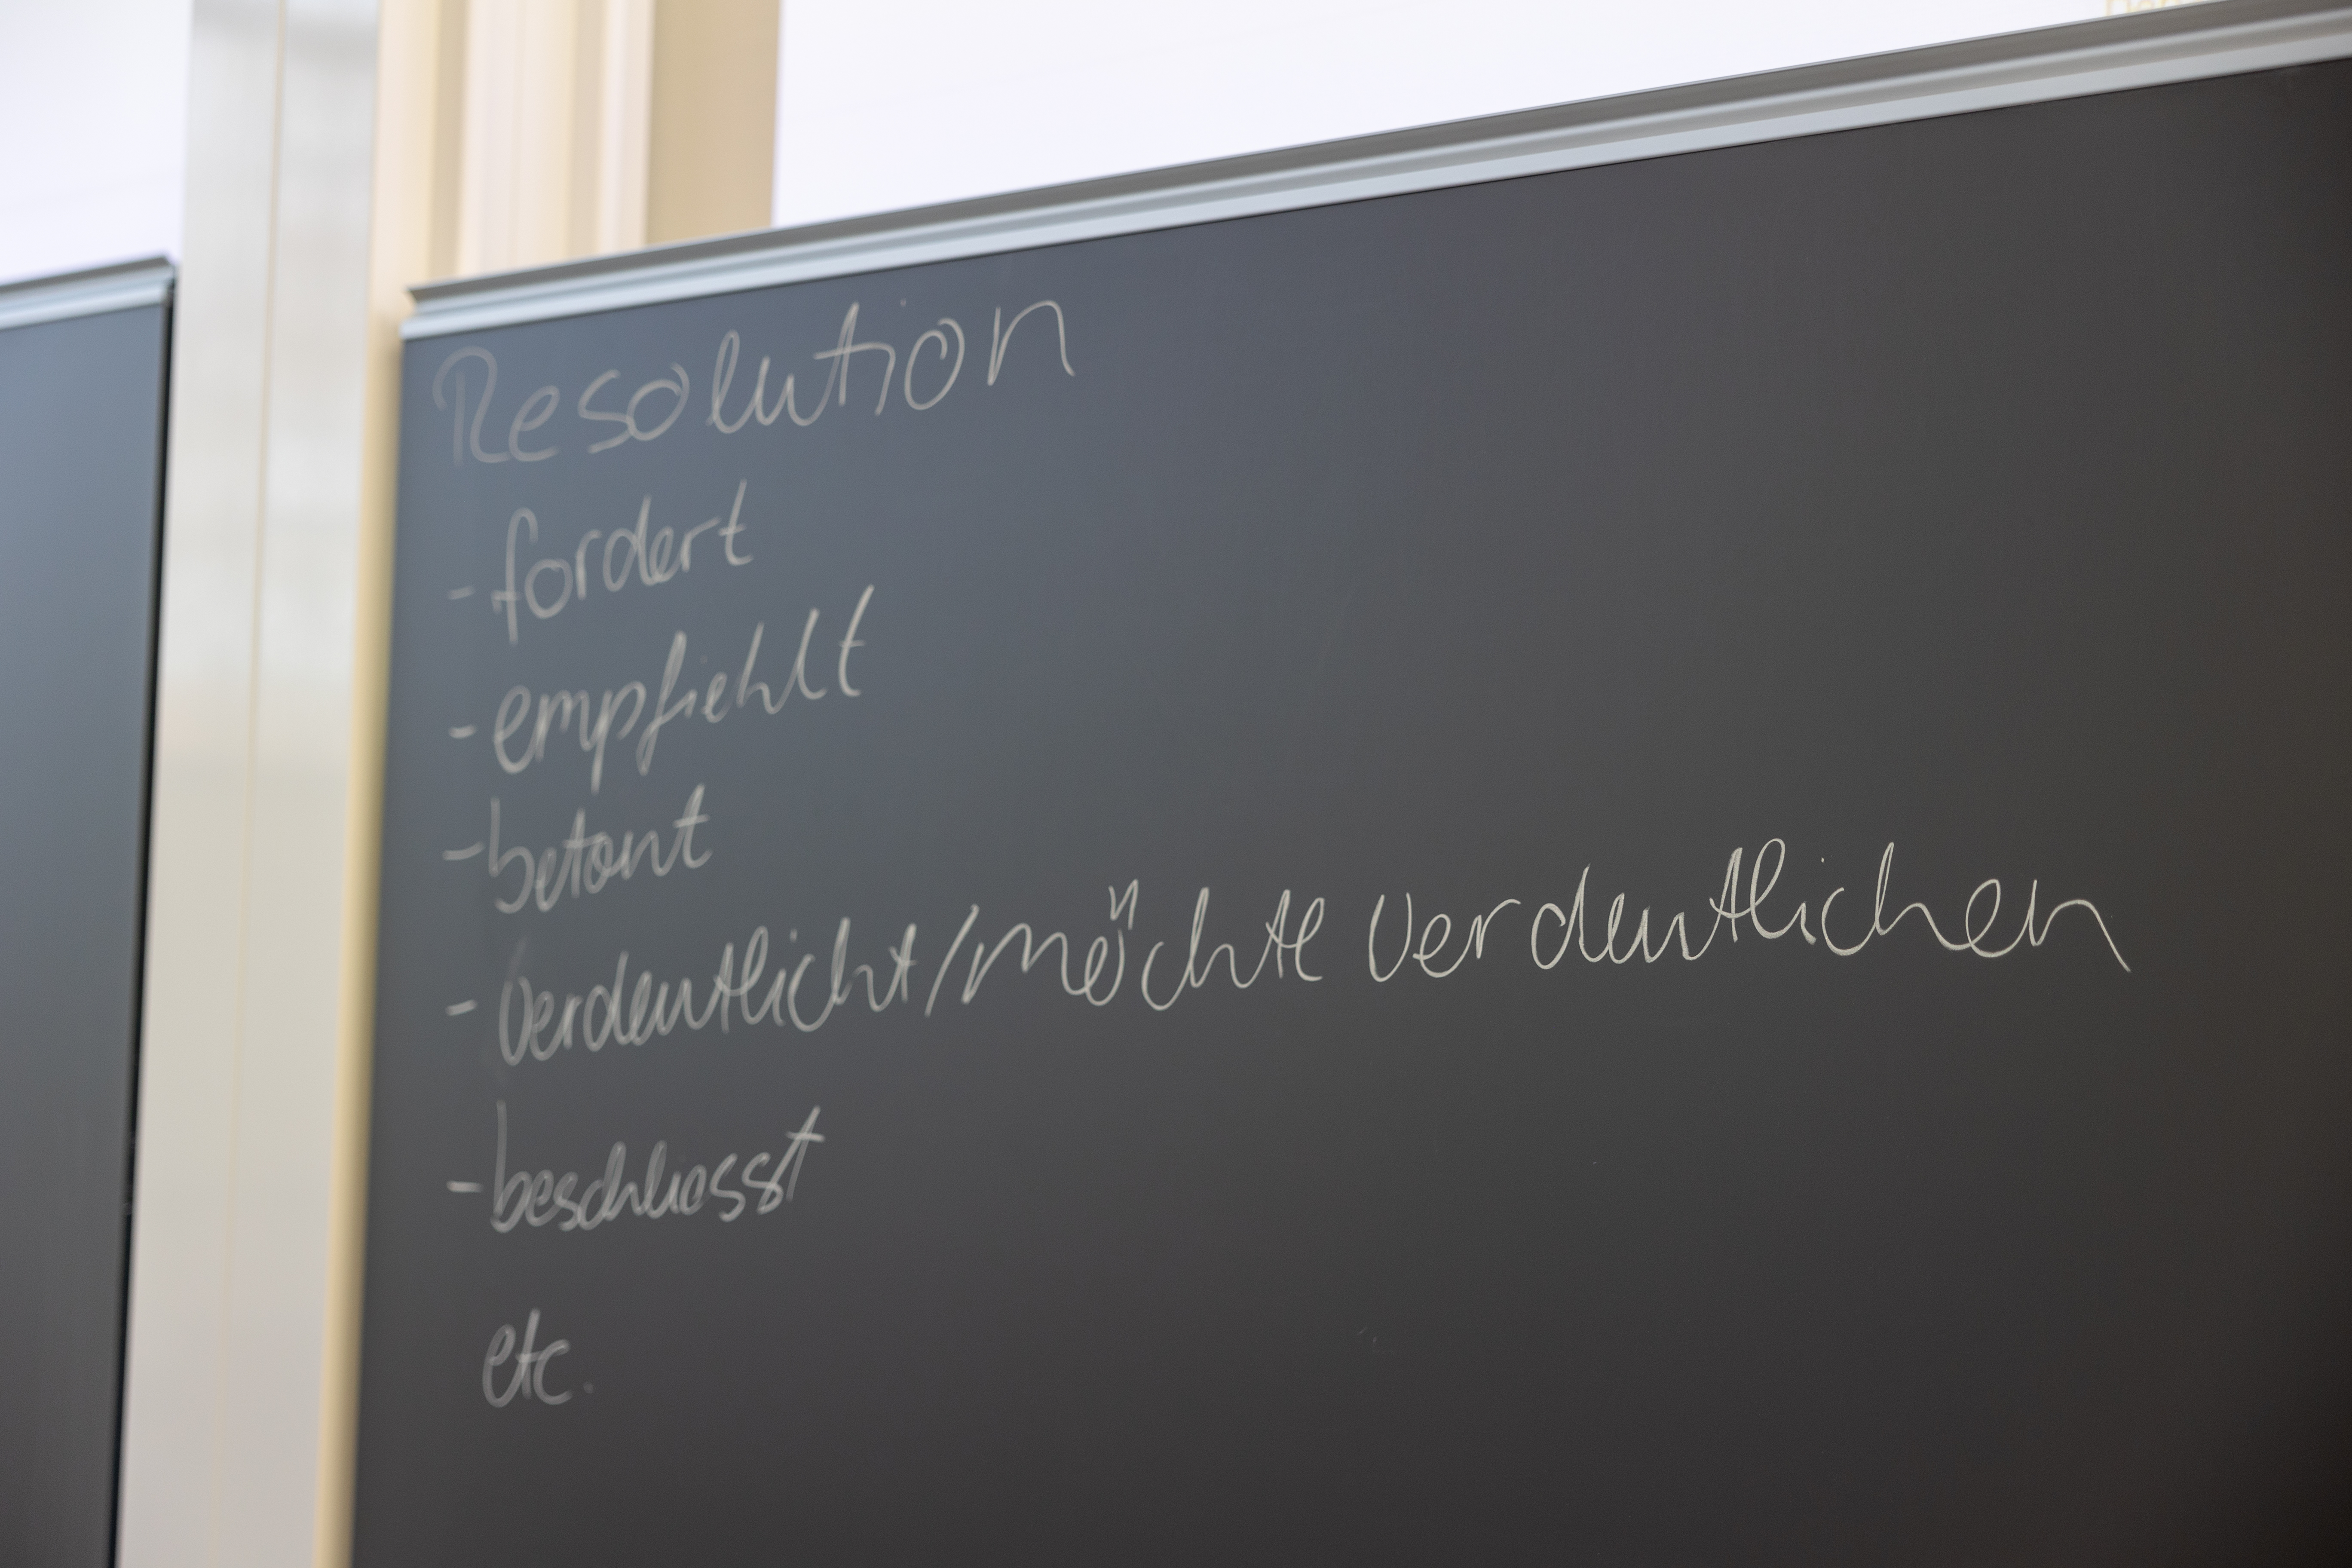 Resolution
- fordert
- empfiehlt
- betont
- verdeutlicht/möchte verdeutlichen
- beschliesst
etc.